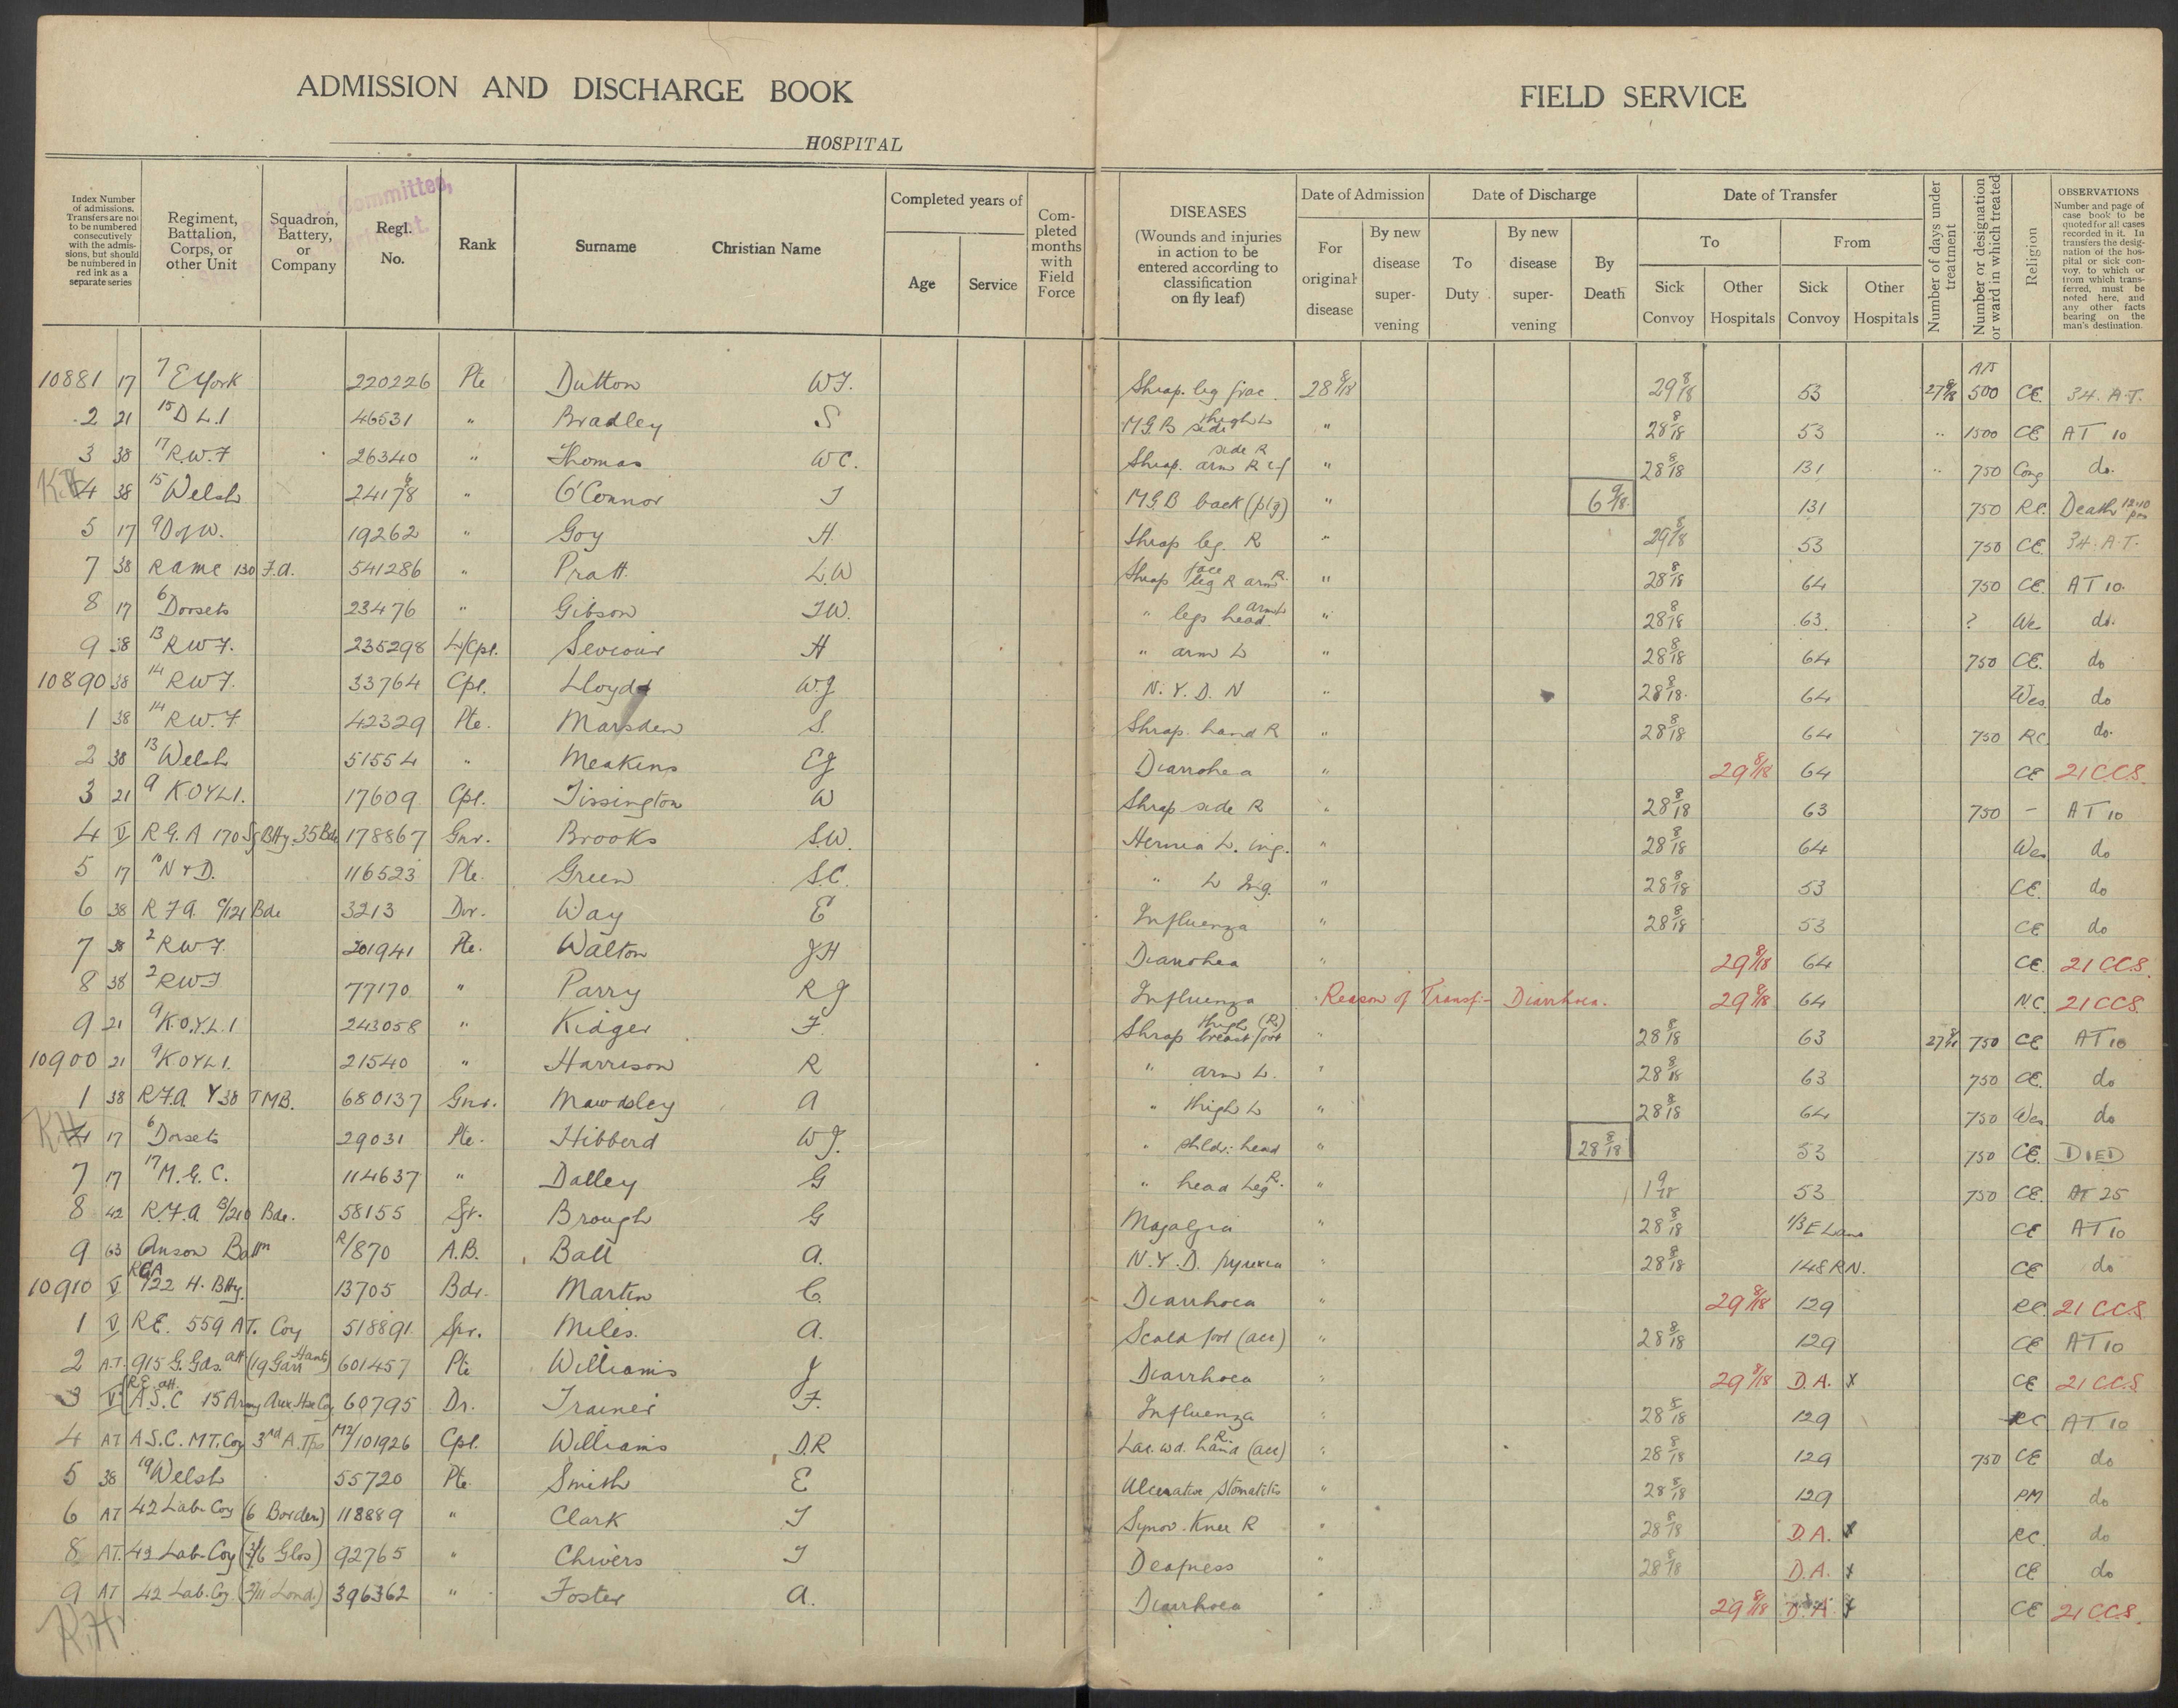 ADMISSION AND DISCHARGE BOOK
HOSPITAL
FIELD SERVICE
Committee,
Index Number of admissions. Transfers are not to be numbered consecutively with the admissions, but should be numbered in red ink as a separate series
Regiment, Battalion, Corps, or other Unit
Squadron, Battery, or Company
Regl. No.
Rank
Surname Christian Name
Completed years of
Age Service
Completed months with Field Force
DISEASES (Wounds and injuries in action to be entered according to classification on fly leaf)
Date of Admission
For original disease
By new disease supervening
Date of Discharge
To Duty
By new disease supervening
By Death
Date of Transfer
To From
Sick Convoy Other Hospitals Sick Convoy Other Hospitals
Number of days under treatment
Number or designation or ward in which treated
Religion
OBSERVATIONS Number and page of case book to be quoted for all cases recorded in it. In transfers the designation of the hospital or sick convoy, to which or from which transferred, must be noted here, and any other facts bearing on the man's destination.
10881 17 7 E York 220226 Pte Dutton W.F. Shrap. leg frac. 28 8/18 29 8/18 53 27 8/18 500 CE. 34. A.T.
2 21 15 D.L.I 46531 " Bradley S M.G.B side thigh L " 28 8/18 53 " 1500 CE AT 10
3 38 17 R.W.F 26340 " Thomas W C. Shrap. arm R side R " 28 8/18 131 " 750 Cong do.
K.H 4 38 15 Welsh " O'Connor J M.G.B back (plg) " 6 9/18 131 750 RC. Death 12.10 pm
5 17 9 D of W. 19262 " Goy H. Shrap leg. R " 29 8/18 53 750 CE. 34. A.T.
7 38 RAMC 130 F.A. 541286 " Pratt L.W Shrap face leg R arm R. " 28 8/18 64 750 CE. AT 10.
8 17 6 Dorsets 23476 " Gibson J.W. " legs head arm L " 28 8/18 63 ? We do.
9 38 13 R.W.F. 235298 L/Cpl. Seviour H " arm L " 28 8/18 64 750 CE. do
10890 38 14 R.W.F. 33764 Cpl. Lloyd W.J N.Y.D. N " 28 8/18 64 Wes do
1 38 14 R.W.F. 42329 Pte. Marsden S. Shrap. hand R " 28 8/18 64 750 RC do.
2 38 13 Welsh 51554 " Meakins E J Diarrohea " 29 8/18 64 CE 21 CCS.
3 21 9 KOYLI. 17609 Cpl. Tissington W Shrap side R " 28 8/18 63 750 - AT 10
4 V R.G.A 170 Sg Btty. 35 Bde 178867 Gnr. Brooks S.W. Hernia L. ing. " 28 8/18 64 Wes do
5 17 10 N & D. 116523 Pte. Green S.C. " L Ing. " 28 8/18 53 CE. do
6 38 R F A. C/121 Bde 3213 Dvr. Way E Influenza 28 8/18 53 CE do
7 38 2 R W F. 201941 Pte. Walton J H Diarrohea " 29 8/18 64 CE. 21 CCS.
8 38 2 R W F 77170 " Parry R J Influenza Reason of Transf:- Diarrhoea. 29 8/18 64 N.C. 21 CCS.
9 21 9 K.O.Y.L.I 243058 " Kidger F. Shrap breast foot thigh (R) " 28 8/18 63 27 8/18 750 CE AT 10
10900 21 9 KOYLI. 21540 " Harrison R " arm L. " 28 8/18 63 750 CE. do
1 38 R.F.A. Y38 T.M.B. 680137 Gnr. Mawdsley A " thigh L " 28 8/18 64 750 Wes do
K.H 4 17 6 Dorsets 29031 Pte. Hibberd W J. " shldr: head " 28 8/18 53 750 CE. DIED
7 17 17 M.G.C. 114637 " Dalley G " head leg R. " 1 9/18 53 750 CE. AT 25
8 42 R.F.A C/210 Bde. 58155 Sgt. Brough G Myalgia " 28 8/18 1/3 E Lanc CE AT 10
9 63 Anson Battn R/870 A.B. Ball A. N.Y.D. pyrexia " 28 8/18 148 R.N. CE do
10910 V RGA 122 H. Btty. 13705 Bdr. Martin C. Diarrhoea " 29 8/18 129 RC. 21 CCS
1 V RE. 559 AT. Coy 518891 Spr. Miles. A. Scald foot (acc) " 28 8/18 129 CE AT 10
2 A.T. 915 G. Gds. att (19 Garr Hants) 601457 Pte Williams J Diarrhoea " 29 8/18 D.A. x CE 21 CCS
3 V R.E. att. A.S.C 15 Army Aux. Hse Coy 60795 Dr. Trainer F. Influenza " 28 8/18 129 RC AT 10
4 AT A.S.C. MT. Coy 3rd A. Tps M2/101926 Cpl. Williams D.R Lac. wd. hand R. (acc) " 28 8/18 129 750 CE do
5 38 19 Welsh 55720 Pte Smith E Ulcerative Stomatitis " 28 8/18 129 PM do
6 AT 42 Lab. Coy (6 Border) 118889 " Clark J Synov. Knee R " 28 8/18 D.A. x RC. do
8 AT. 42 Lab. Coy (2/6 Glos) 92765 " Chivers J Deafness " 28 8/18 D.A. x CE do
9 AT 42 Lab. Coy. (2/11 Lond.) 396362 " Foster A. Diarrhoea " 29 8/18 D.A. x CE 21 CCS.
R.H